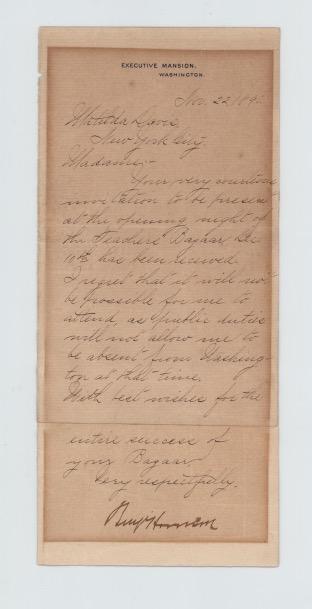 EXECUTIVE MANSION.
WASHINGTON.
Nov. 22, 189
Matilda Davis,
New York City.
Madame,-
Your very courteous
invitation to be present
at the opening night of
the Teachers' Bazaar, Dec
10th has been received.
I regret that it will not
be possible for me to
attend, as public duties
will not allow me to
be absent from Washing-
ton at that time.
With best wishes for the
entire success of
your Bazaar,
Very respectfully,
Benj Harrison